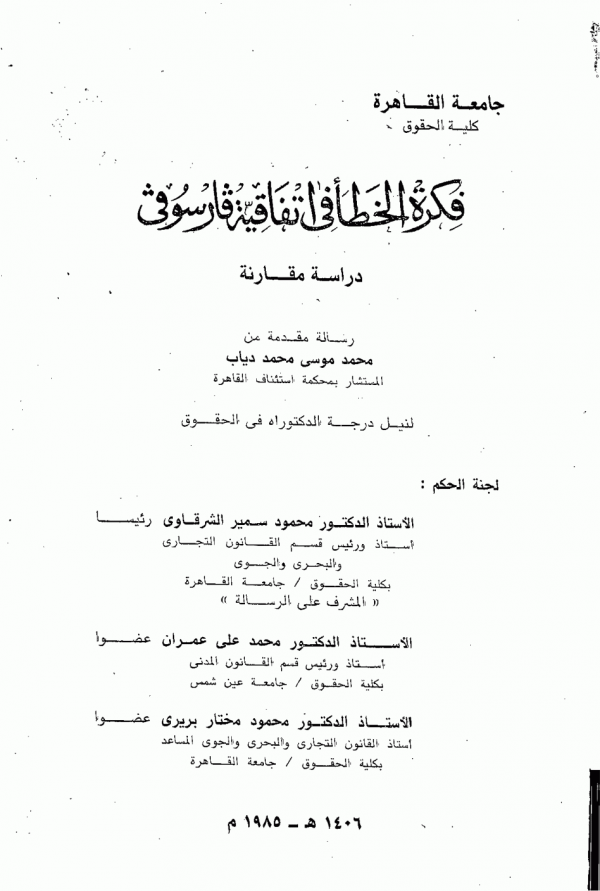 جامعة القاهرة
كلية الحقوق
فكرة الخطأ فى اتفاقية ڤارسوڤى
دراسة مقارنة
رسالة مقدمة من
محمد موسى محمد دياب
المستشار بمحكمة استئناف القاهرة
لنيل درجة الدكتوراه فى الحقوق
لجنة الحكم :
الأستاذ الدكتور محمود سمير الشرقاوى رئيسا
أستاذ ورئيس قسم القانون التجارى
والبحرى والجوى
بكلية الحقوق / جامعة القاهرة
« المشرف على الرسالة »
الأستاذ الدكتور محمد على عمران عضوا
أستاذ ورئيس قسم القانون المدنى
بكلية الحقوق / جامعة عين شمس
الأستاذ الدكتور محمود مختار بريرى عضوا
أستاذ القانون التجارى والبحرى والجوى المساعد
بكلية الحقوق / جامعة القاهرة
١٤٠٦ هـ ــ ١٩٨٥ م